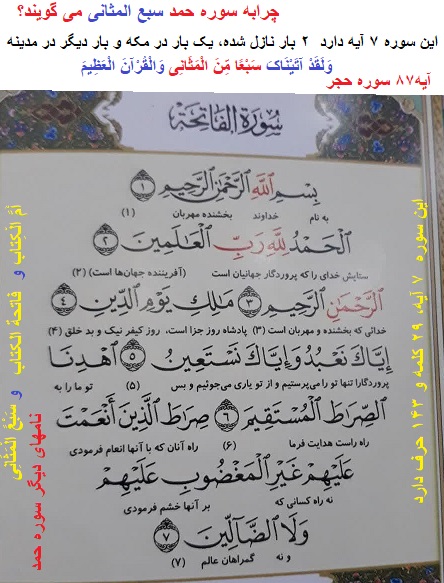 چرا به سوره حمد سبع المثانی می گویند؟
این سوره ۷ آیه دارد ۲ بار نازل شده، یک بار در مکه و بار دیگر در مدینه
وَلَقَدْ آتَيْنَاكَ سَبْعًا مِّنَ الْمَثَانِي وَالْقُرْآنَ الْعَظِيمَ
آیه۸۷ سوره حجر
سُورَةُ الفَاتِحَة
بِسْمِ اللَّهِ الرَّحْمَٰنِ الرَّحِيمِ ۝١
به نام خداوند بخشنده مهربان (۱)
الْحَمْدُ لِلَّهِ رَبِّ الْعَٰلَمِينَ ۝٢
ستایش خدای را که پروردگار جهانیان است (آفریننده جهان‌ها است) (۲)
الرَّحْمَٰنِ الرَّحِيمِ ۝٣ مَٰلِكِ يَوْمِ الدِّينِ ۝٤
خدائی که بخشنده و مهربان است (۳) پادشاه روز جزا است، روز کیفر نیک و بد خلق (۴)
إِيَّاكَ نَعْبُدُ وَإِيَّاكَ نَسْتَعِينُ ۝٥ اهْدِنَا
پروردگارا تنها تو را می‌پرستیم و از تو یاری می‌جوئیم و بس (۵) تو ما را به
الصِّرَٰطَ الْمُسْتَقِيمَ ۝٦ صِرَٰطَ الَّذِينَ أَنْعَمْتَ
راه راست هدایت فرما (۶) راه آنان که با آنها انعام فرمودی
عَلَيْهِمْ غَيْرِ الْمَغْضُوبِ عَلَيْهِمْ
نه راه کسانی که بر آنها خشم فرمودی
وَلَا الضَّالِّينَ ۝٧
و نه گمراهان عالم (۷)
این سوره ۷ آیه، ۲۹ کلمه و ۱۴۳ حرف دارد
اُمُّ الْکِتَاب و فاتحة الکتاب و سَبْعُ الْمَثَانِی
نامهای دیگر سوره حمد